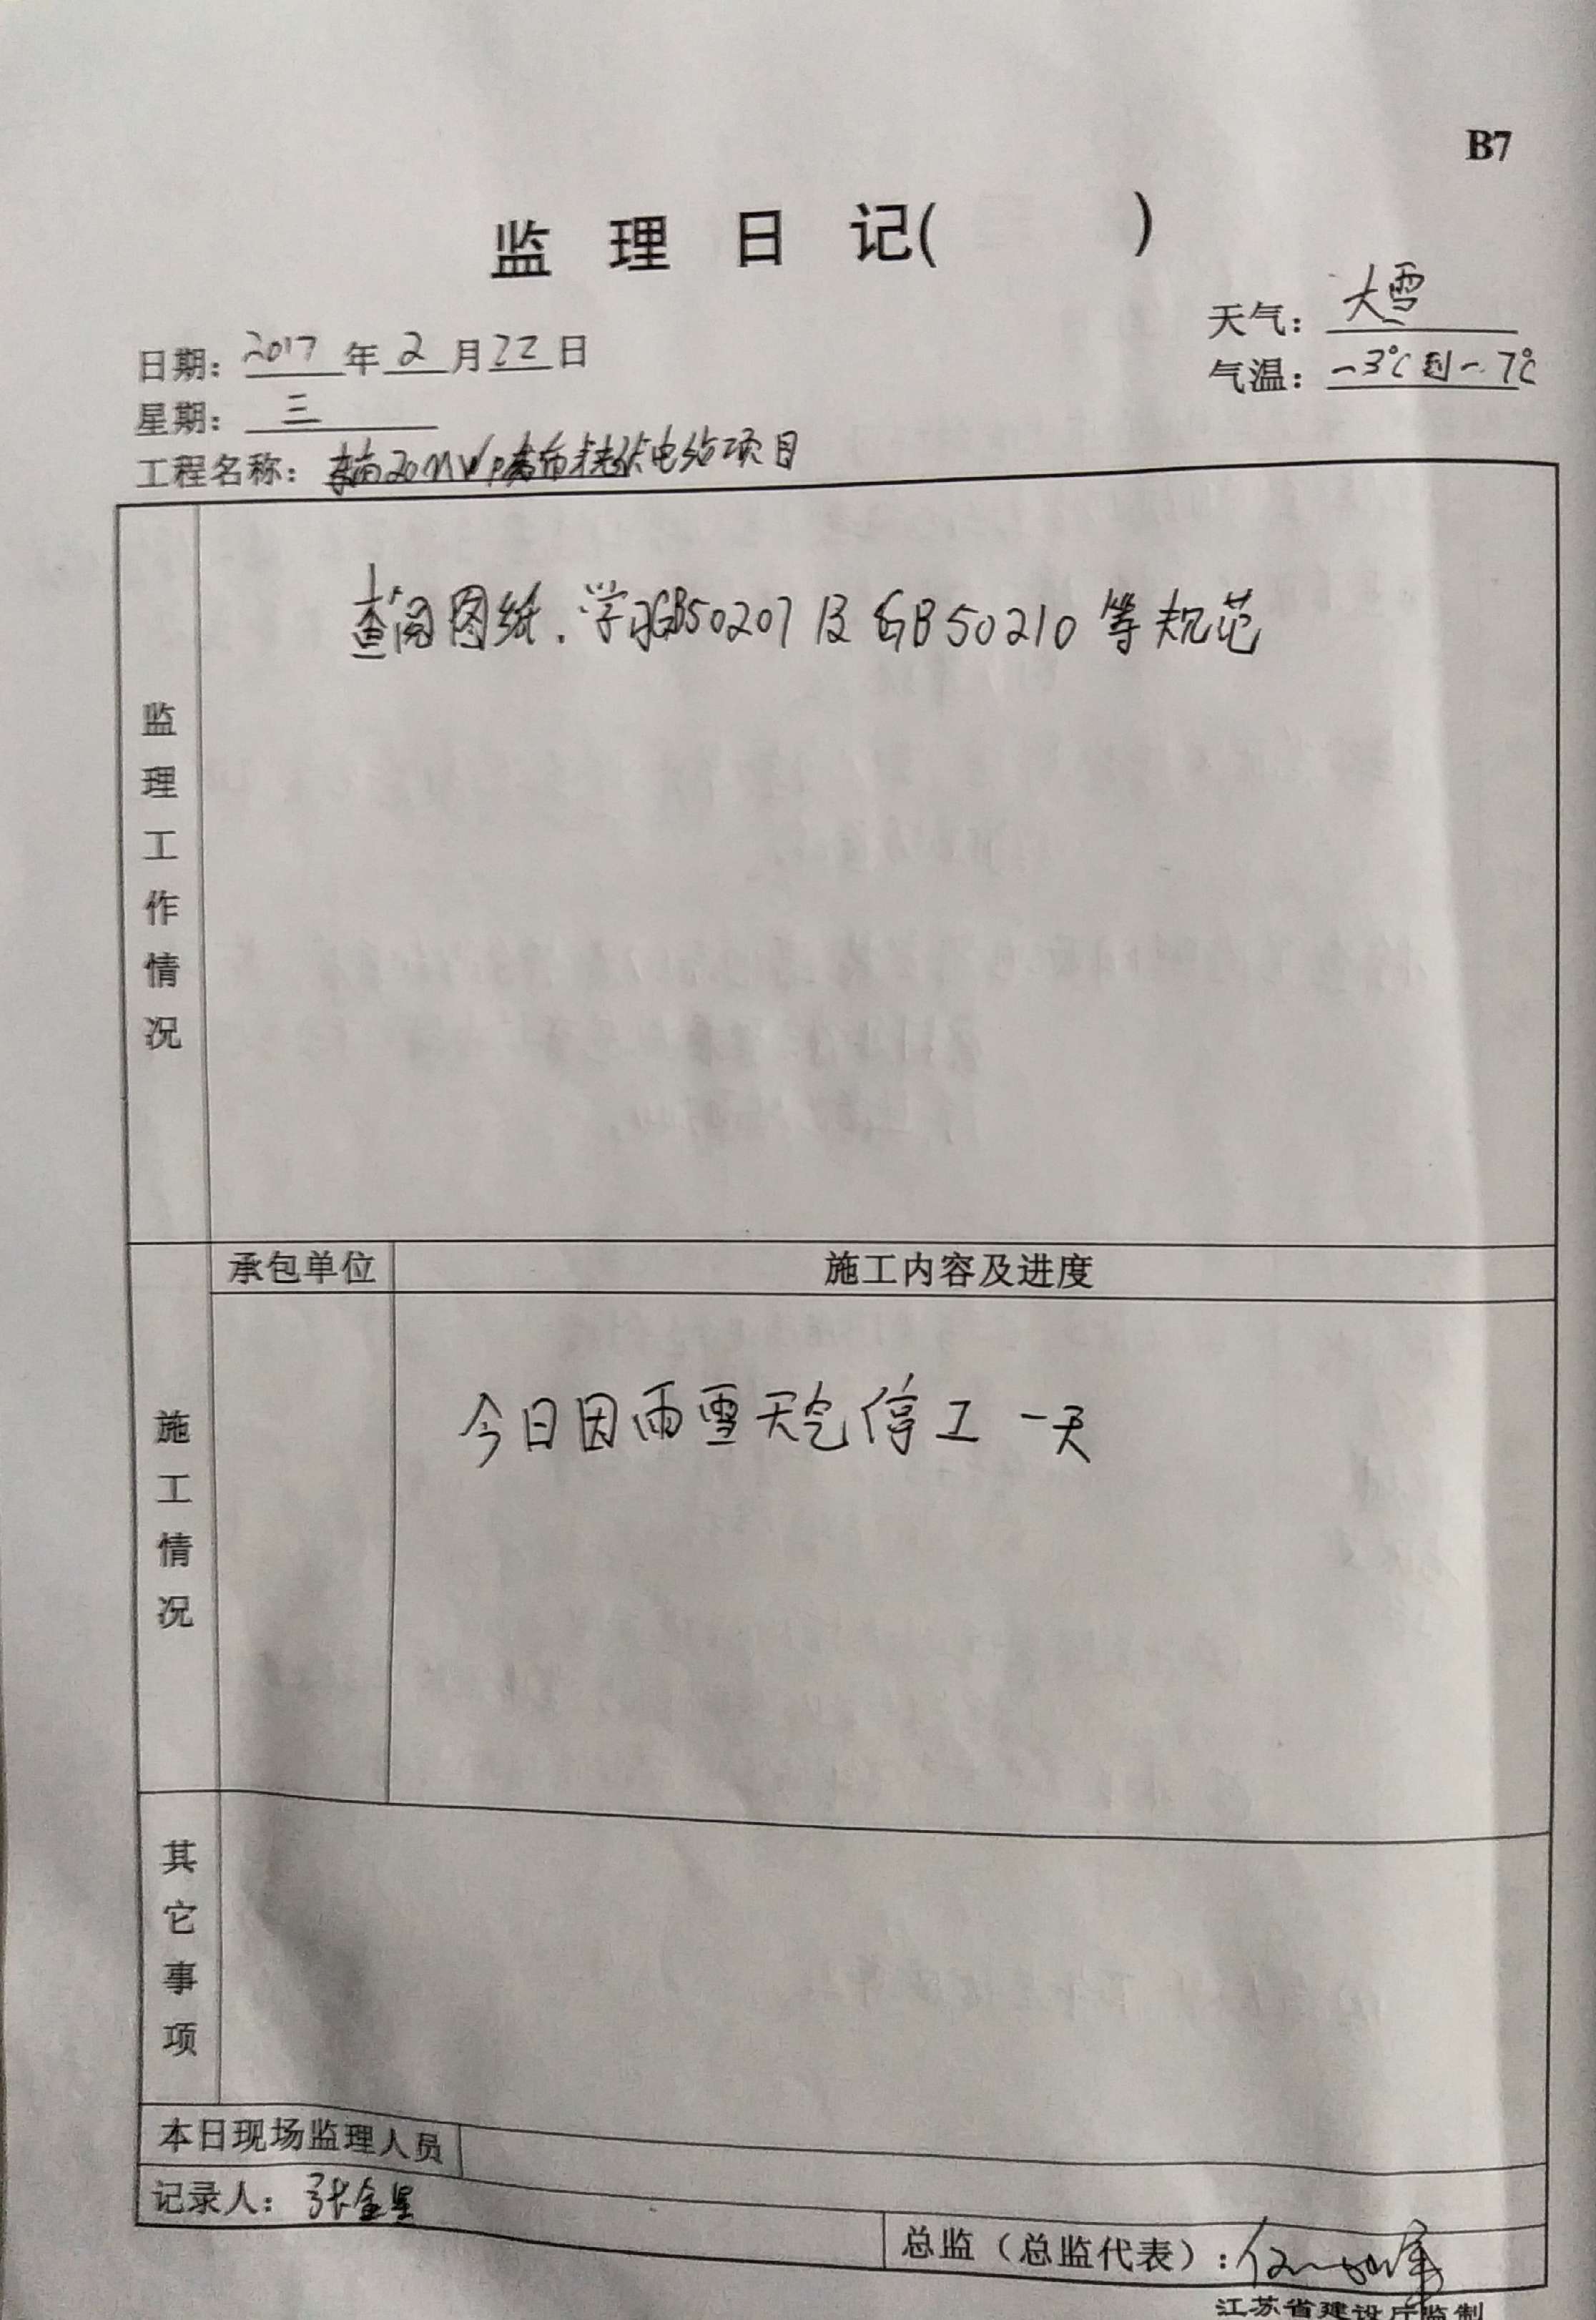 B7
监 理 日 记( )
天气: 大雪
日期: 2017 年 2 月 22 日
气温: -3℃到-7℃
星期: 三
工程名称: 20MWp 电站项目
查阅图纸.学习GB50207及GB50210等规范
监理工作情况
承包单位 施工内容及进度
今日因雨雪天气停工一天
施工情况
其它事项
本日现场监理人员
记录人: 张金星
总监(总监代表):
江苏省建设厅监制